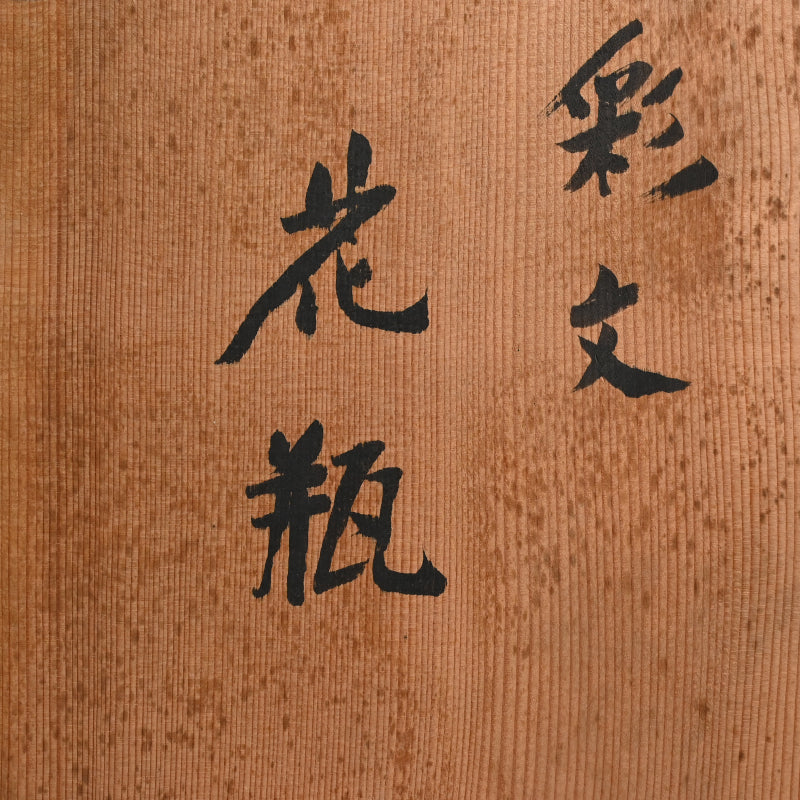 彩文
花瓶